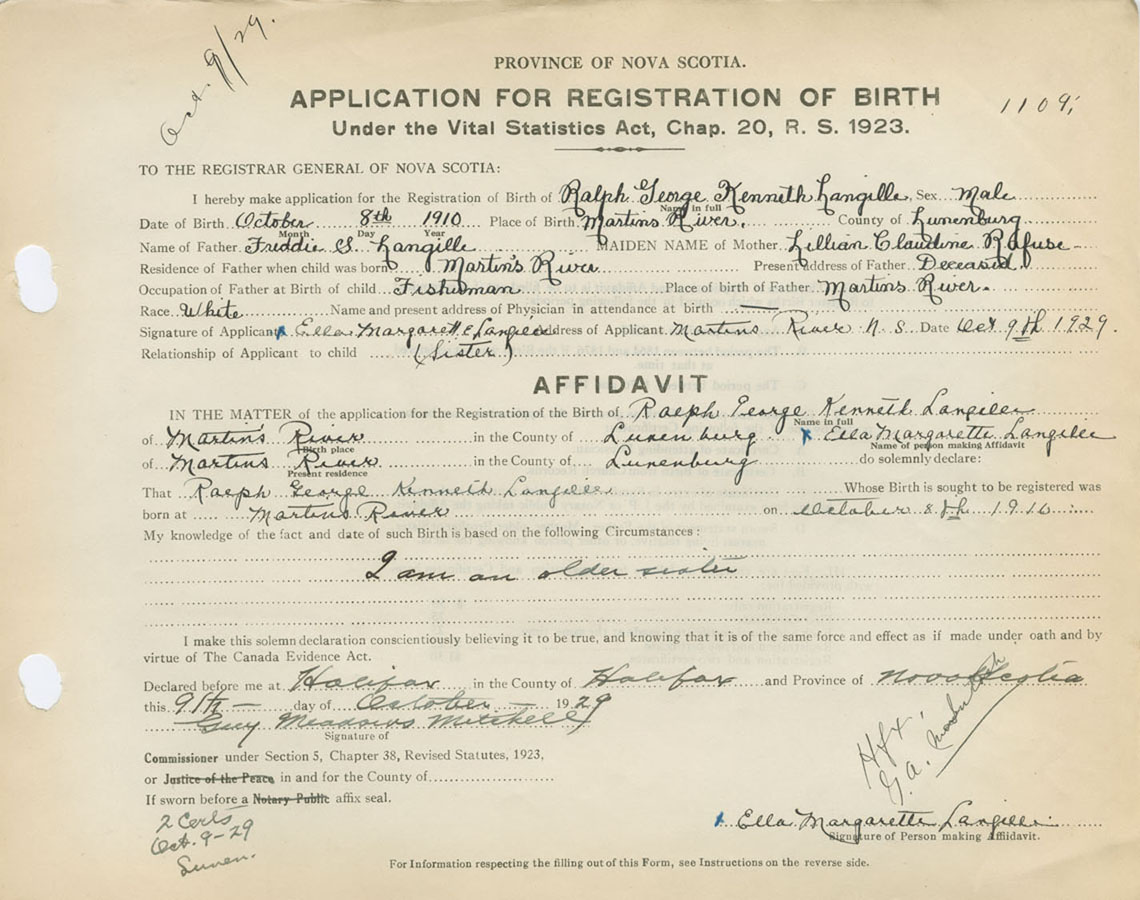 Oct. 9/29.
PROVINCE OF NOVA SCOTIA.
APPLICATION FOR REGISTRATION OF BIRTH
1109;
Under the Vital Statistics Act, Chap. 20, R. S. 1923.
TO THE REGISTRAR GENERAL OF NOVA SCOTIA:
I hereby make application for the Registration of Birth of Ralph George Kenneth Langille Sex Male
Name in full
Date of Birth October 8th 1910 Place of Birth Martins River. County of Lunenburg
Month Day Year
Name of Father Freddie S. Langille MAIDEN NAME of Mother Lillian Claudine Rafuse
Residence of Father when child was born Martin's River Present address of Father Deceased
Occupation of Father at Birth of child Fisherman Place of birth of Father Martins River.
Race White Name and present address of Physician in attendance at birth —
Signature of Applicant x Ella Margarett E. Langille Address of Applicant Martins River N. S. Date Oct 9th 1929.
Relationship of Applicant to child (Sister)
AFFIDAVIT
IN THE MATTER of the application for the Registration of the Birth of Ralph George Kenneth Langille
Name in full
of Martins River in the County of Lunenburg x Ella Margarette Langille
Birth place Name of person making Affidavit
of Martins River in the County of Lunenburg do solemnly declare:
Present residence
That Ralph George Kenneth Langille Whose Birth is sought to be registered was
born at Martins River on October 8th 1910
My knowledge of the fact and date of such Birth is based on the following Circumstances:
I am an older sister
I make this solemn declaration conscientiously believing it to be true, and knowing that it is of the same force and effect as if made under oath and by
virtue of The Canada Evidence Act.
Declared before me at Halifax in the County of Halifax and Province of Nova Scotia
this 9th — day of October — 1929
Guy Meadows Mitchell
Signature of
Commissioner under Section 5, Chapter 38, Revised Statutes, 1923,
or Justice of the Peace in and for the County of
If sworn before a Notary Public affix seal.
Hfx.
G. A.
2 Certs
Oct. 9-29
Lunen.
x Ella Margarette Langille
Signature of Person making Affidavit.
For Information respecting the filling out of this Form, see Instructions on the reverse side.